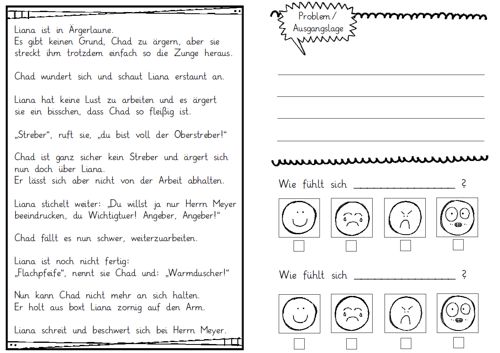 Liana ist in Ärgerlaune.
Es gibt keinen Grund, Chad zu ärgern, aber sie
streckt ihm trotzdem einfach so die Zunge heraus.
Chad wundert sich und schaut Liana erstaunt an.
Liana hat keine Lust zu arbeiten und es ärgert
sie ein bisschen, dass Chad so fleißig ist.
„Streber“, ruft sie, „du bist voll der Oberstreber!“
Chad ist ganz sicher kein Streber und ärgert sich
nun doch über Liana.
Er lässt sich aber nicht von der Arbeit abhalten.
Liana stichelt weiter: „Du willst ja nur Herrn Meyer
beeindrucken, du Wichtigtuer! Angeber, Angeber!“
Chad fällt es nun schwer, weiterzuarbeiten.
Liana ist noch nicht fertig:
„Flachpfeife“, nennt sie Chad und: „Warmduscher!“
Nun kann Chad nicht mehr an sich halten.
Er holt aus boxt Liana zornig auf den Arm.
Liana schreit und beschwert sich bei Herrn Meyer.
Problem/
Ausgangslage
Wie fühlt sich ____________________ ?
Wie fühlt sich ____________________ ?